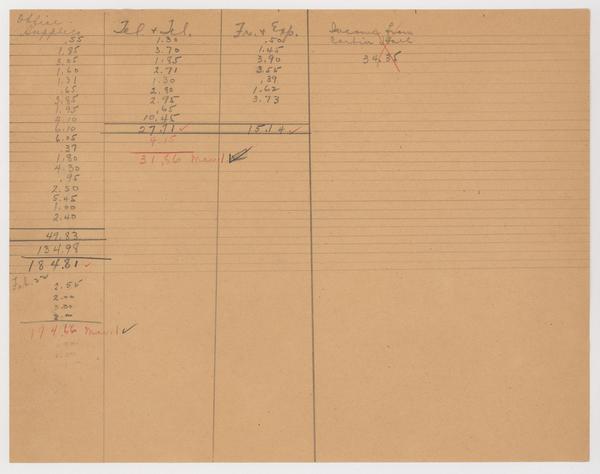 Office
Supplies
.55
1.85
3.05
1.60
1.31
.65
3.85
1.95
4.10
6.10
6.05
.37
1.80
4.30
.95
2.50
5.45
1.00
2.40
49.83
134.98
184.81 ✓
Feb. 22
2.55
2.00
3.00
2.00
194.66 Mar. 1 ✓
Tel & Tel.
1.30
3.70
1.85
2.71
1.30
2.80
2.95
.65
10.45
27.71 ✓
4.15
31.56 Mar. 1 ✓
Fr. & Exp.
.50
1.45
3.90
3.55
.39
1.62
3.73
15.14 ✓
Income from
34.35